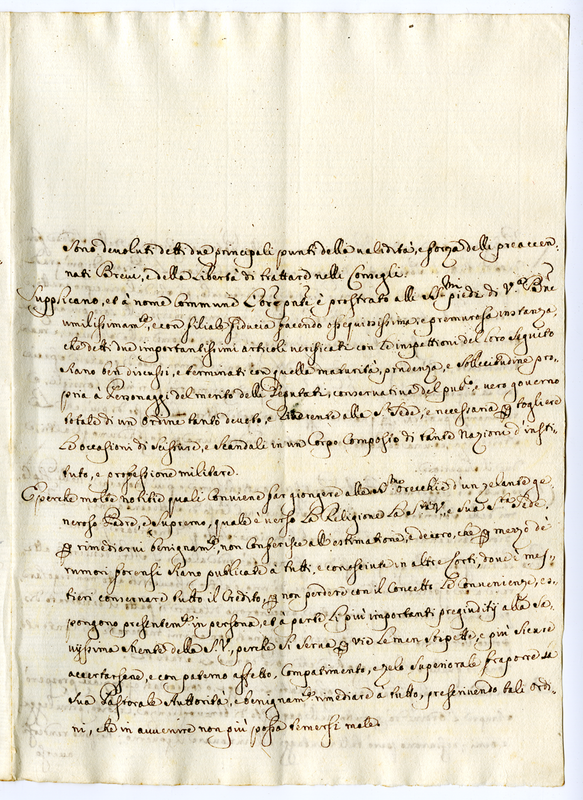 sono devoluti detti due principali punti della validità, e forza delli preaccen-
nati Brevi, e della libertà di trattare nelli Consegli.
Supplicano, et à nome Commune l'Ore pnte è prostrato alli SSmi piedi di V.ra Bne
umilissimam.te, e con filiale fiducia facendo ossequiosissima, e premurosa instanza,
che detti due importantissimi articoli verificati con le inspettioni del loro seguito
siano ben discussi, e terminati con quella maturità, prudenza, e sollecitudine pro-
pria a Personaggi del merito delli Deputati, conservativa del pub.co, e vero governo
totale di un Ordine tanto devoto, e alla S. Sede, e necessaria p togliere
le occasioni di scissure, e scandali in un Corpo composto di tante Nazioni d'insti-
tuto, e professione militare.
E perche molte notitie quali conviene far giongere alle SS.me orecchie d'un zelante, ge-
neroso Padre, e Supremo, quale è verso la Religione la S.tà V.ra, e sua S.ta Sede,
p rimediarvi benignam.te, non conferisce all'estimatione, e decoro, che p mezzo de
rumori forensi siano publicate à tutti, e conosciute in altre Corti, dove è mes-
tieri conservare tutto il Credito, p non perdere con il Concetto le Convenienze, es-
pongono presentem.te in persona, et à parte li più importanti pregiuditij alla Sa-
vijssima Mente della S.V., perche si serva p vie le men strepitose, e più sicure
accertarsene, e con paterno affetto, Compatimento, e zelo superiorale fraporre la
sua Pastorale Autorità, e benignam.te rimediare à tutto, prescrivendo tali ordi-
ni, che in avvenire non più possa temersi male.